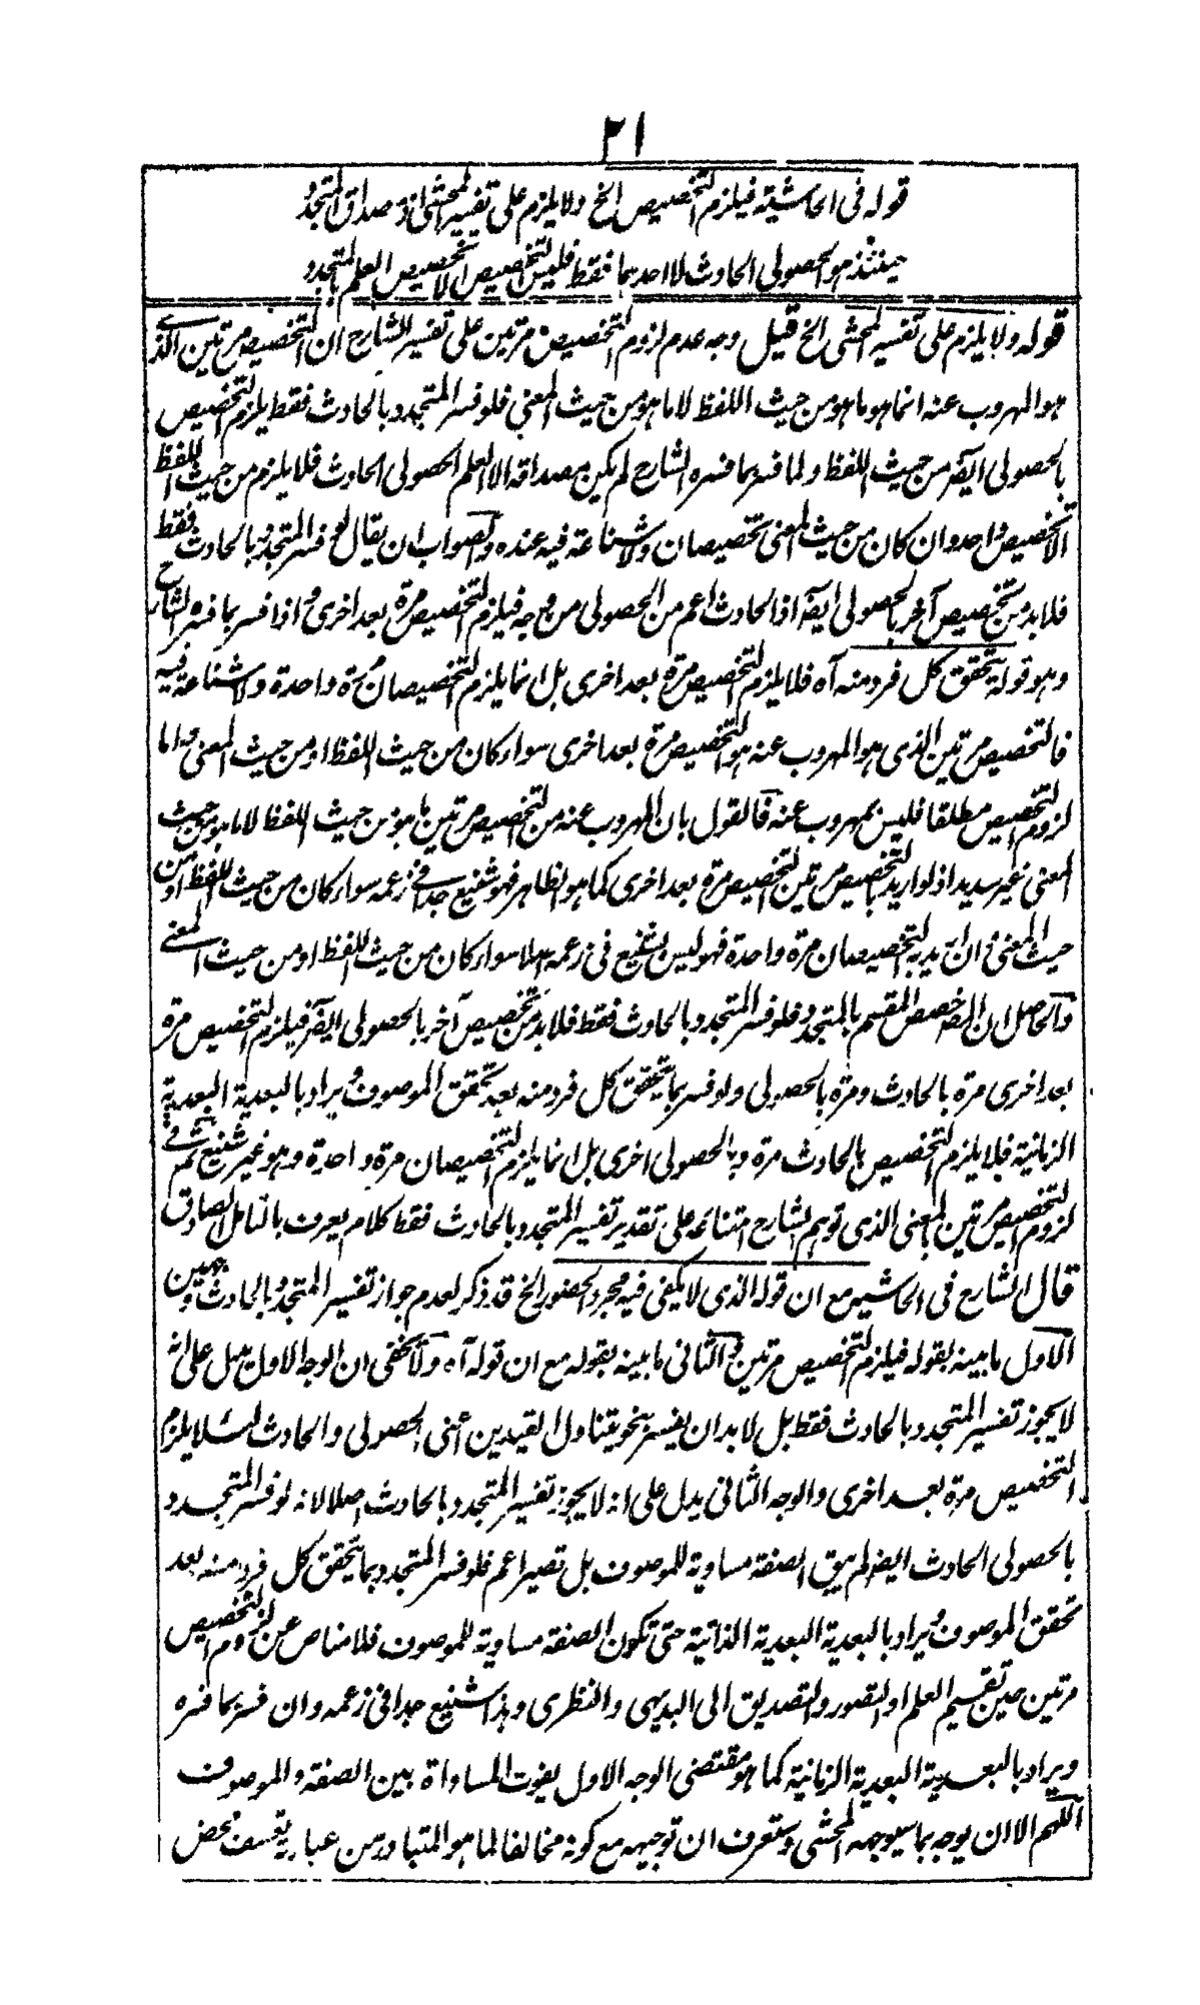 ٢١
قوله فى الحاشية فيلزم التخصيص الخ ولا يلزم على تفسير المحشى اذ صداق المتجدد
حينئذ هو الحصولى الحادث لا احدهما فقط فليس التخصيص الا تخصيص العلم بالمتجدد
قوله ولا يلزم على تفسير المحشى الخ قيل وجه عدم لزوم التخصيص مرتين على تفسير الشارح ان التخصيص مرتين الذى
هو المهروب عنه انما هو ما هو من حيث اللفظ لا ما هو من حيث المعنى فلو فسر المتجدد بالحادث فقط يلزم التخصيص
بالحصولى ايضا من حيث اللفظ ولما فسر بما فسره الشارح لم يكن مصداقه الا العلم الحصولى الحادث فلا يلزم من حيث اللفظ
الا تخصيص واحد وان كان من حيث المعنى تخصيصان ولا شناعة فيه عنده والصواب ان يقال لو فسر المتجدد بالحادث فقط
فلابد من تخصيص آخر بالحصولى ايضا اذ الحادث اعم من الحصولى من وجه فيلزم التخصيص مرة بعد اخرى واذا فسر بما فسره الشارح
وهو قوله يتحقق كل فرد منه آه فلا يلزم التخصيص مرة بعد اخرى بل انما يلزم التخصيصان مرة واحدة ولا شناعة فيه
فالتخصيص مرتين الذى هو المهروب عنه هو التخصيص مرة بعد اخرى سواء كان من حيث اللفظ او من حيث المعنى واما
لزوم التخصيص مطلقا فليس بمهروب عنه فالقول بان المهروب عنه من التخصيص مرتين ما هو من حيث اللفظ لا ما هو من حيث
المعنى غير سديد اذ لو اريد بالتخصيص مرتين التخصيص مرة بعد اخرى كما هو الظاهر فهو شنيع جدا فى زعمه سواء كان من حيث اللفظ او من
حيث المعنى وان اريد به التخصيصان مرة واحدة فهو ليس بشنيع فى زعمه اصلا سواء كان من حيث اللفظ او من حيث المعنى
والحاصل ان المخصص المقسم بالمتجدد فلو فسر المتجدد بالحادث فقط فلابد من تخصيص آخر بالحصولى ايضا فيلزم التخصيص مرة
بعد اخرى مرة بالحادث ومرة بالحصولى ولو فسر بما يتحقق كل فرد منه بعد تحقق الموصوف ويراد بالبعدية البعدية
الزمانية فلا يلزم التخصيص بالحادث مرة وبالحصولى اخرى بل انما يلزم التخصيصان مرة واحدة وهو غير شنيع ثم فى
لزوم التخصيص مرتين بالمعنى الذى توهم الشارح امتناعه على تقدير تفسير المتجدد بالحادث فقط كلام يعرف بالتامل الصادق
قال الشارح فى الحاشية مع ان قوله الذى لا يكفى فيه مجرد الحضور الخ قد ذكر لعدم جواز تفسير المتجدد بالحادث وجهين
الاول ما بينه بقوله فيلزم التخصيص مرتين والثانى ما بينه بقوله مع ان قوله آه ولا يخفى ان الوجه الاول يدل على انه
لا يجوز تفسير المتجدد بالحادث فقط بل لابد ان يفسر بنحو يتناول القيدين اعنى الحصولى والحادث لئلا يلزم
التخصيص مرة بعد اخرى والوجه الثانى يدل على انه لا يجوز تفسير المتجدد بالحادث اصلا لانه لو فسر المتجدد
بالحصولى الحادث ايضا لم يبق الصفة مساوية للموصوف بل تصير اعم فلو فسر المتجدد بما يتحقق كل فرد منه بعد
تحقق الموصوف ويراد بالبعدية البعدية الذاتية حتى تكون الصفة مساوية للموصوف فلا مناص عن لزوم التخصيص
مرتين حين تقسيم العلم او التصور والتصديق الى البديهى والنظرى وهذا شنيع جدا فى زعمه وان فسر بما فسره
ويراد بالبعدية البعدية الزمانية كما هو مقتضى الوجه الاول يفوت المساواة بين الصفة والموصوف
اللهم الا ان يوجه بما سيوجهه المحشى وستعرف ان توجيهه مع كونه مخالفا لما هو المتبادر من عبارته تعسف محض